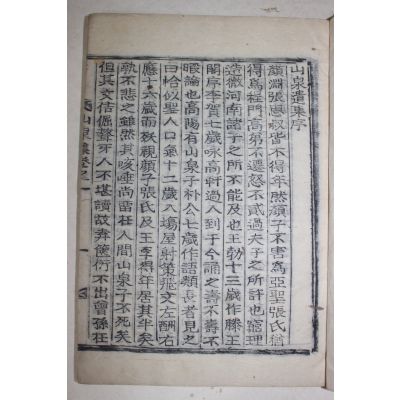 山泉遺集序
顔淵張思叔皆不得年然顔子不害爲亞聖張氏猶
得爲程門高第不遷怒不貳過夫子之所許也窮理
造微河南諸子之所不能及也王勃十三歲作滕王
閣序李賀七歲咏高軒過人到于今誦之壽不壽不
暇論也高陽有山泉子朴公七歲作語類長者見之
曰恰似聖人口氣十一歲入塲屋射策飛文左酬右
應十六歲而歿視顔子張氏及王李得年居其半矣
孰不悲之雖然其咳唾尚留在人間山泉子不死矣
但其文佶倔聱牙人不堪讀故弆篋衍不出曾孫在
山泉集卷之一